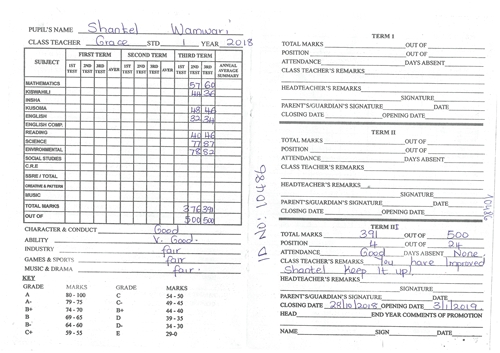 PUPIL'S NAME Shantel Wamwari
CLASS TEACHER Grace STD 1 YEAR 2018
SUBJECT FIRST TERM SECOND TERM THIRD TERM ANNUAL AVERAGE SUMMARY
1ST TEST 2ND TEST 3RD TEST AVER 1ST TEST 2ND TEST 3RD TEST AVER 1ST TEST 2ND TEST 3RD TEST
MATHEMATICS 57 60
KISWAHILI 44 36
INSHA
KUSOMA 48 46
ENGLISH 32 34
ENGLISH COMP.
READING 40 46
SCIENCE 77 87
ENVIRONMENTAL 78 82
SOCIAL STUDIES
C.R.E
SSRE / TOTAL
CREATIVE & PATTERN
MUSIC
TOTAL MARKS 376 391
OUT OF 500 500
CHARACTER & CONDUCT Good
ABILITY V. Good.
INDUSTRY fair
GAMES & SPORTS fair
MUSIC & DRAMA fair.
KEY
GRADE MARKS GRADE MARKS
A 80 - 100 C 54 - 50
A- 79 - 75 C 49 - 45
B+ 74 - 70 B+ 44 - 40
B 69 - 65 D 39 - 35
B- 64 - 60 D- 34 - 30
C+ 59 - 55 E 29-0
D No: 10486
TERM I
TOTAL MARKS OUT OF
POSITION OUT OF
ATTENDANCE DAYS ABSENT
CLASS TEACHER'S REMARKS
HEADTEACHER'S REMARKS
SIGNATURE
PARENT'S/GUARDIAN'S SIGNATURE DATE
CLOSING DATE OPENING DATE
TERM II
TOTAL MARKS OUT OF
POSITION OUT OF
ATTENDANCE DAYS ABSENT
CLASS TEACHER'S REMARKS
HEADTEACHER'S REMARKS
SIGNATURE
PARENT'S/GUARDIAN'S SIGNATURE DATE
CLOSING DATE OPENING DATE
10486
TERM III
TOTAL MARKS 391 OUT OF 500
POSITION 4 OUT OF 24
ATTENDANCE Good DAYS ABSENT None.
CLASS TEACHER'S REMARKS You have Improved
Shantel Keep it up!
HEADTEACHER'S REMARKS
SIGNATURE
PARENT'S/GUARDIAN'S SIGNATURE DATE
CLOSING DATE 28/10/2018 OPENING DATE 3/1/2019
HEAD END YEAR COMMENTS OF PROMOTION
NAME SIGN DATE